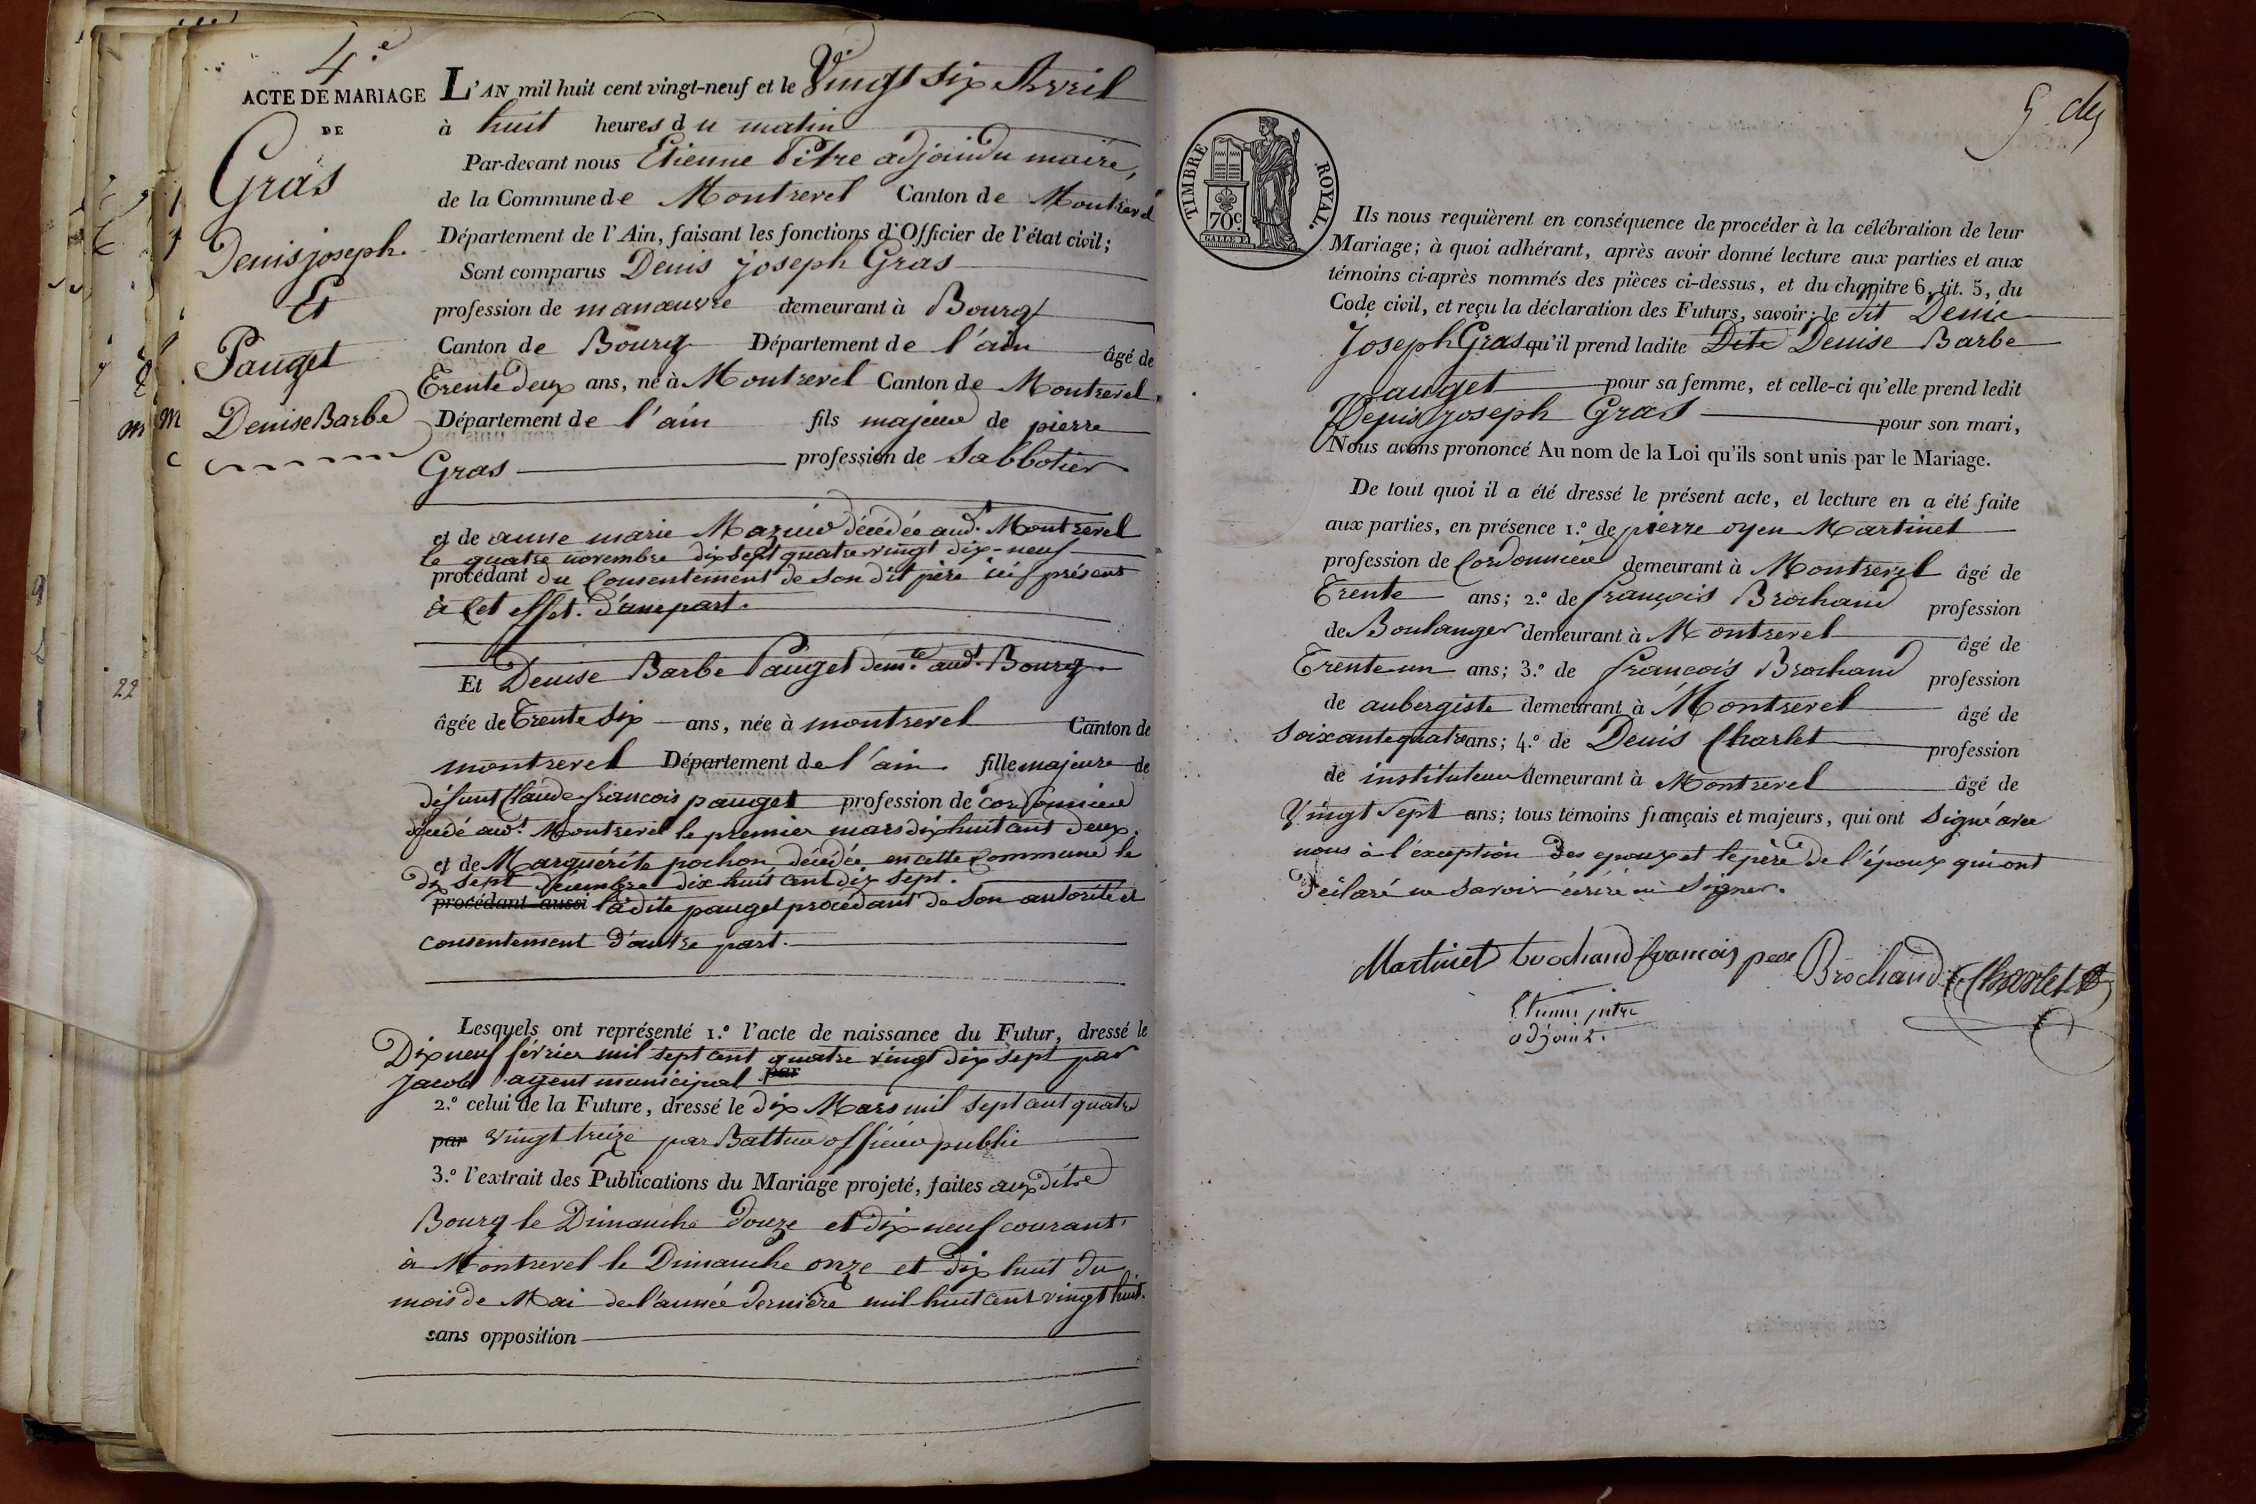 4.e
ACTE DE MARIAGE
DE
Gras
Denis joseph.
Et
Pauget
Denise Barbe
L'AN mil huit cent vingt-neuf et le Vingt six Avril
à huit heures du matin
Par-devant nous Etienne Pitre adjoindu maire,
de la Commune de Montrevel Canton de Montrevel
Département de l'Ain, faisant les fonctions d'Officier de l'état civil;
Sont comparus Denis joseph Gras
profession de manœuvre demeurant à Bourg
Canton de Bourg Département de l'ain âgé de
Trente deux ans, né à Montrevel Canton de Montrevel
Département de l'ain fils majeur de pierre
Gras profession de Sabbotier
et de anne marie décédée aud.t Montrevel
le quatre novembre dix sept quatre vingt dix-neuf
procédant du Consentement de son dit père ici présent
à Cet effet. d'une part.
Et Denise Barbe Pauget dem.te aud.t Bourg.
âgée de Trente Six ans, née à montrevel Canton de
montrevel Département de l'ain fille majeure de
défunt Claude francois pauget profession de cordonnier
décédé aud.t Montrevel le premier mars dix huit cent deux.
et de Marguérite pochon décédée en cette Commune le
dix sept décembre dix huit cent dix sept.
procédant aussi ladite pauget procédant de son autorité et
consentement d'autre part.
Lesquels ont représenté 1.º l'acte de naissance du Futur, dressé le
Dix neuf février mil sept cent quatre vingt dix sept par
Jacob agent municipal par
2.º celui de la Future, dressé le dix Mars mil sept cent quatre
par vingt treize par officier public
3.º l'extrait des Publications du Mariage projeté, faites
Bourg le Dimanche douze et dix-neuf courant,
à Montrevel le Dimanche onze et dix huit du
mois de Mai de l'année dernière mil huit cent vingt huit.
sans opposition
22
TIMBRE ROYAL.
70c
Ils nous requièrent en conséquence de procéder à la célébration de leur
Mariage; à quoi adhérant, après avoir donné lecture aux parties et aux
témoins ci-après nommés des pièces ci-dessus, et du chapitre 6, tit. 5, du
Code civil, et reçu la déclaration des Futurs, savoir: le dit Denis
Joseph Gras qu'il prend ladite Dite Denise Barbe
Pauget pour sa femme, et celle-ci qu'elle prend ledit
Denis joseph Gras pour son mari,
Nous avons prononcé Au nom de la Loi qu'ils sont unis par le Mariage.
De tout quoi il a été dressé le présent acte, et lecture en a été faite
aux parties, en présence 1.º de pierre oyen Martinet
profession de Cordonnier demeurant à Montrevel âgé de
Trente ans; 2.º de françois Brochand profession
de Boulanger demeurant à Montrevel âgé de
Trente un ans; 3.º de francois Brochand profession
de aubergiste demeurant à Montrevel âgé de
Soixante quatre ans; 4.º de Denis Charlet profession
de instituteur demeurant à Montrevel âgé de
Vingt Sept ans; tous témoins français et majeurs, qui ont signé avec
nous à l'exception des epoux et le père de l'époux qui ont
déclaré ne savoir écrire ni signer.
Martinet brochand francois pere Brochand f Charlet D
Etienne pitre
adjoint.